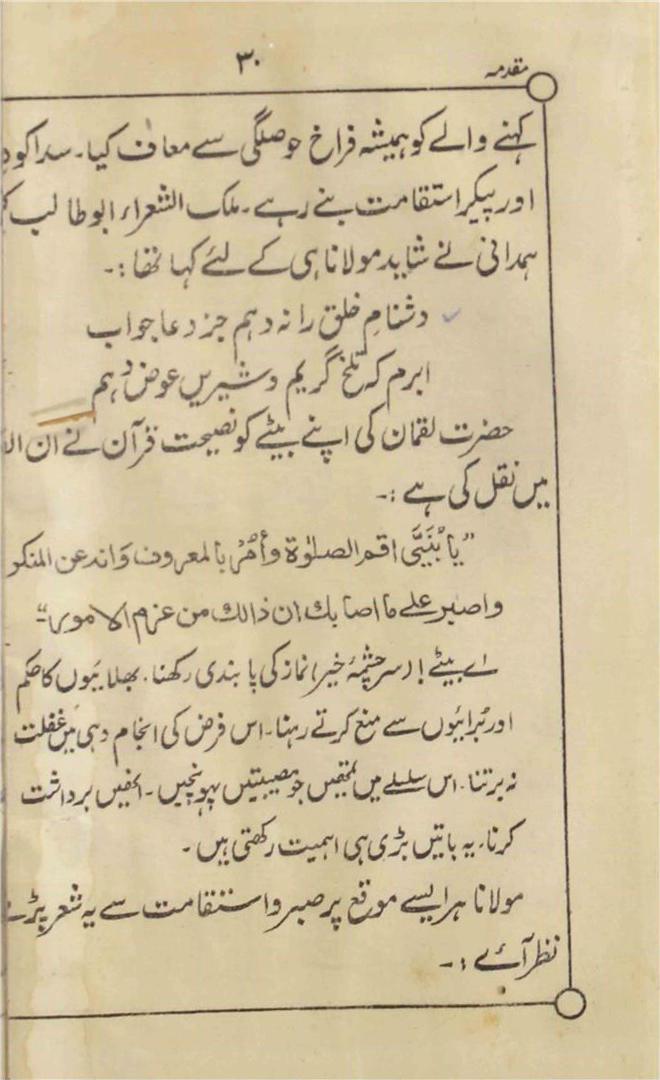 مقدمہ
۳۰
کہنے والے کو ہمیشہ فراخ حوصلگی سے معاف کیا۔ سدا کوہ
اور پیکر استقامت بنے رہے۔ ملک الشعراء ابو طالب
ہمدانی نے شاید مولانا ہی کے لئے کہا تھا :۔
دشنامِ خلق را نہ دہم جز دعا جواب
ابرم کہ تلخ گریم و شیریں عوض دہم
حضرت لقمان کی اپنے بیٹے کو نصیحت قرآن نے ان
میں نقل کی ہے :۔
”یا بُنَیَّی اقم الصلوٰۃ وأمُرْ بالمعروف وَانہ عن المنکر
واصبر علےٰ ما اصابک ان ذالک من عزم الامور“۔
اے بیٹے! (سرچشمۂ خیر) نماز کی پابندی رکھنا۔ بھلائیوں کا حکم
اور بُرائیوں سے منع کرتے رہنا۔ اس فرض کی انجام دہی میں غفلت
نہ برتنا۔ اس سلسلے میں تمھیں جو مصیبتیں پہونچیں۔ انھیں برداشت
کرنا۔ یہ باتیں بڑی ہی اہمیت رکھتی ہیں۔
مولانا ہر ایسے موقع پر صبر و استقامت سے یہ شعر پڑھتے
نظر آئے :۔